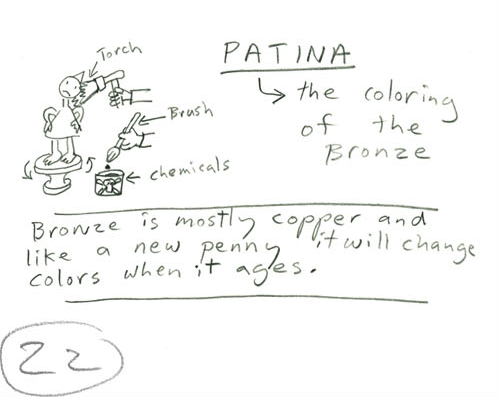 Torch
PATINA
the coloring
of the
Bronze
Brush
chemicals
Bronze is mostly copper and
like a new penny it will change
colors when it ages.
22